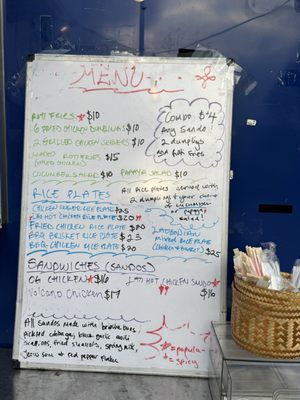 MENU
ROTI FRIES $10
6 FRIED CHICKEN DUMPLINGS $10
2 GRILLED CHICKEN SKEWERS $10
LOADED ROTI FRIES $15
CUCUMBER SALAD $10 PAPAYA SALAD $10
Combo $4
Any Sando
2 dumplings
and Roti Fries
RICE PLATES
CHICKEN SKEWER RICE PLATE $25
HOT CHICKEN RICE PLATE $20
FRIED CHICKEN RICE PLATE $20
BBQ BRISKET RICE PLATE $23
BBQ CHICKEN RICE PLATE $20
All Rice Plates served with
2 dumplings + your choice
of cucumber
or papaya
salad!
MIXED RICE PLATE
$25
SANDWICHES (SANDOS)
OG CHICKEN $16
Volcano Chicken $17
HOT CHICKEN SANDO
$16
All Sandos made with brioche buns,
pickled cabbage, blue garlic aioli
scallions, fried shallots, spring mix,
+ red pepper flakes
= popular
= spicy